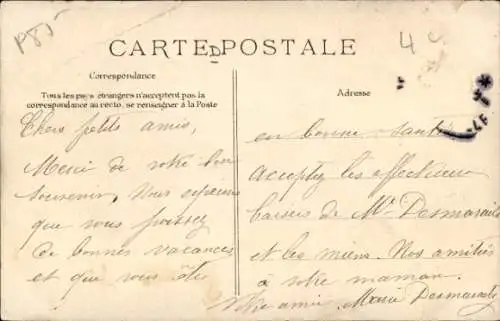 P85
4
CARTE POSTALE
Correspondance
Tous les pays étrangers n'acceptent pas la
correspondance au recto, se renseigner à la Poste
Chers petits amis,
Merci de votre bon
souvenir. Nous espérons
que vous passez
de bonnes vacances
et que vous êtes
Adresse
en bonne santé
Acceptez les affectueux
baisers de Mr Desmarails
et les miens. Nos amitiés
à votre maman.
Votre amie. Marie Desmarails